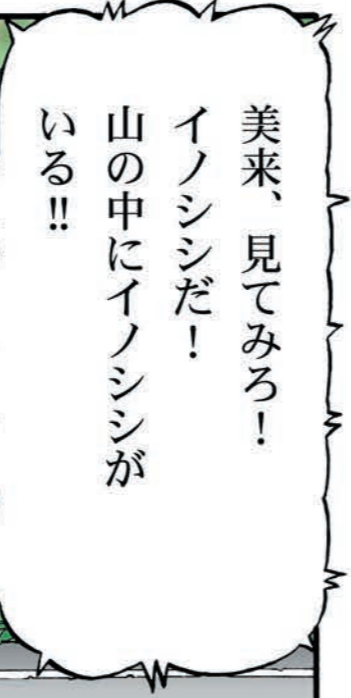 美来、見てみろ！
イノシシだ！
山の中にイノシシが
いる!!